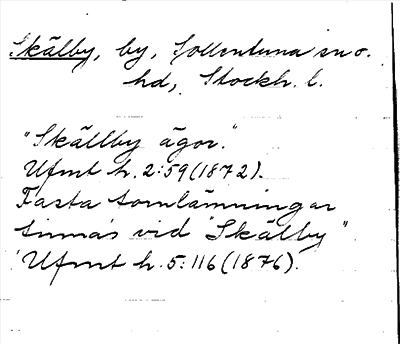 Skälby, by, Sollentuna sn o.
hd, Stockh. l.
"Skällby ägor."
Ufmt h. 2:59 (1872).
Fasta fornlämningar
finnas vid "Skälby"
Ufmt h. 5:116 (1876).